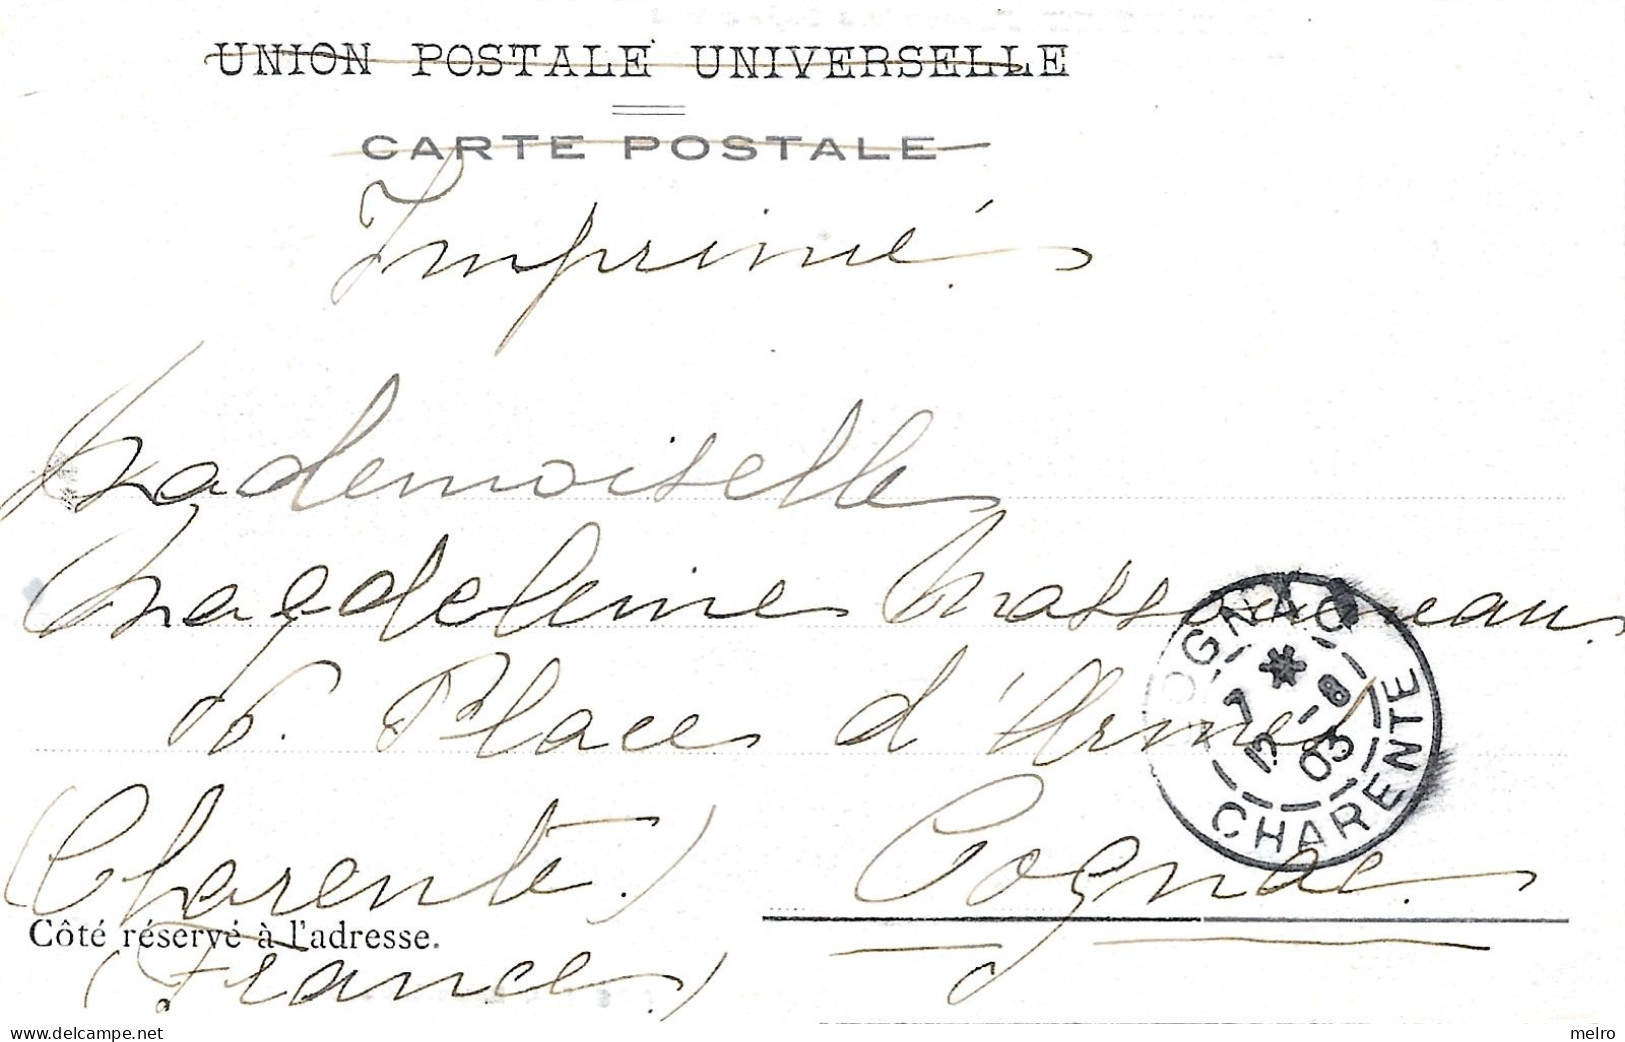 UNION POSTALE UNIVERSELLE
CARTE POSTALE
Imprimé
Mademoiselle
Magdeleine Massonneau
16. Place d'Armes
(Charente.) Cognac.
Côté réservé à l'adresse.
(France)
COGNAC
7 * 
12 -8
03
CHARENTE
www.delcampe.net
melro